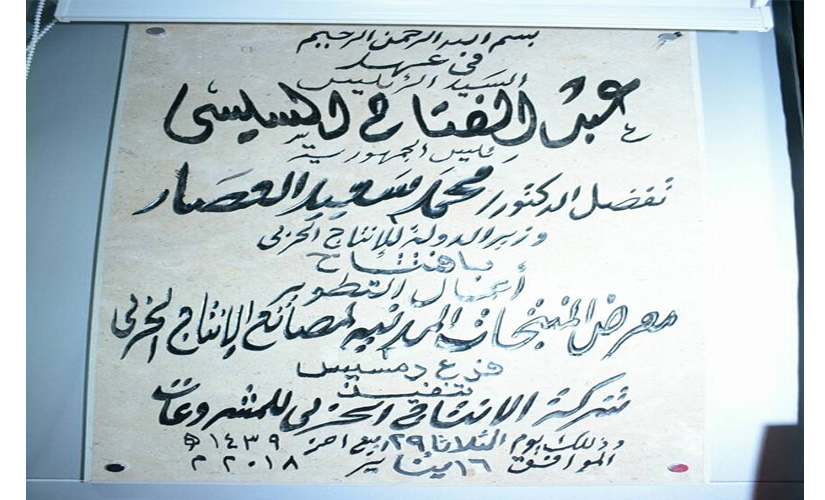 بسم الله الرحمن الرحيم
فى عهد
السيد الرئيس
عبد الفتاح السيسى
رئيس الجمهورية
تفضل الدكتور/ محمد سعيد العصار
وزير الدولة للإنتاج الحربى
بافتتاح
أعمال التطوير
معرض المنتجات المدنيه لمصانع الإنتاج الحربى
فرع رمسيس
تنفيذ
شركة الانتاج الحربى للمشروعات
وذلك يوم الثلاثا ٢٩ ربيع اخر ١٤٣٩ ه
الموافق ١٦ يناير ٢٠١٨ م